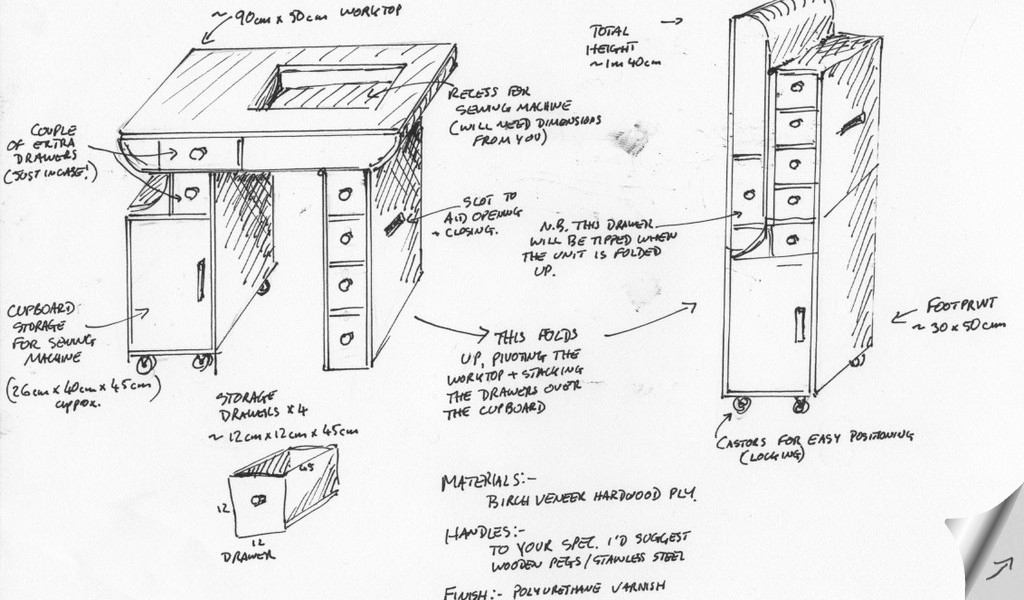 ~ 90cm x 50cm WORKTOP
TOTAL
HEIGHT
~ 1m 40cm
RECESS FOR
SEWING MACHINE
(WILL NEED DIMENSIONS
FROM YOU)
COUPLE
OF EXTRA
DRAWERS
(JUST IN CASE!)
SLOT TO
AID OPENING
+ CLOSING.
N.B. THIS DRAWER
WILL BE TIPPED WHEN
THE UNIT IS FOLDED
UP.
CUPBOARD
STORAGE
FOR SEWING
MACHINE
(26cm x 40cm x 45cm)
approx.
FOOTPRINT
~ 30 x 50cm
THIS FOLDS
UP, PIVOTING THE
WORKTOP + STACKING
THE DRAWERS OVER
THE CUPBOARD
STORAGE
DRAWERS x 4
~ 12cm x 12cm x 45cm
45
12
12
DRAWER
CASTORS FOR EASY POSITIONING
(LOCKING)
MATERIALS:-
BIRCH VENEER HARDWOOD PLY.
HANDLES:-
TO YOUR SPEC. I'D SUGGEST
WOODEN PEGS / STAINLESS STEEL
FINISH:- POLYURETHANE VARNISH